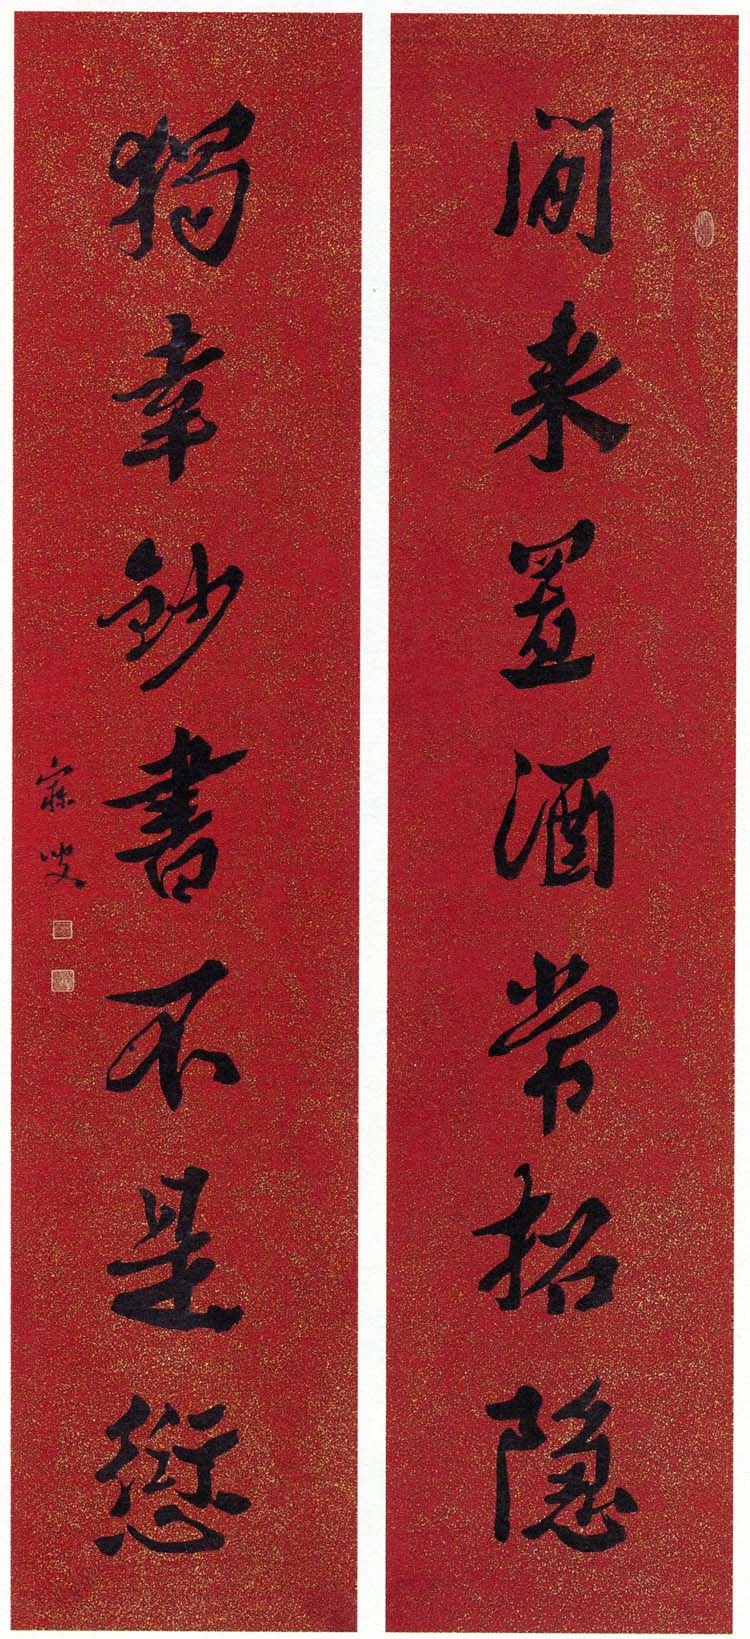 閒来置酒常招隱
獨幸鈔書不是愆
寐叟